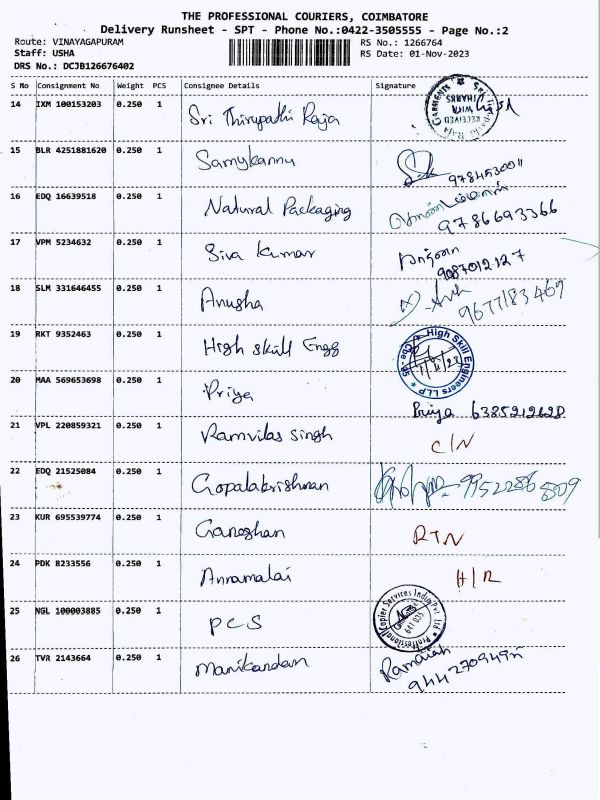 THE PROFESSIONAL COURIERS, COIMBATORE
Delivery Runsheet - SPT - Phone No.:0422-3505555 - Page No.:2
Route: VINAYAGAPURAM RS No.: 1266764
Staff: USHA RS Date: 01-Nov-2023
DRS No.: DCJB126676402
S No Consignment No Weight PCS Consignee Details Signature
14 IXM 100153203 0.250 1 Sri Thirupathi Raja GARMENTS RECEIVED WITH THANKS
15 BLR 4251881620 0.250 1 Samykannu
16 EDQ 16639518 0.250 1 Natural Packaging 9786693366
17 VPM 5234632 0.250 1 Siva Kumar 9087012127
18 SLM 331646455 0.250 1 Anusha 9677183469
19 RKT 9352463 0.250 1 High skill Engg High Skill Engineers LLP Cbe - 35
20 MAA 569653698 0.250 1 Priya Priya 6385212628
21 VPL 220859321 0.250 1 Ramvilas singh C/N
22 EDQ 21525084 0.250 1 Gopalakrishnan
23 KUR 695539774 0.250 1 Ganeshan RTN
24 PDK 8233556 0.250 1 Annamalai H/R
25 NGL 100003885 0.250 1 PCS Copier Services India Pvt. Ltd 641 035
26 TVR 2143664 0.250 1 Manikandan Ramaiah